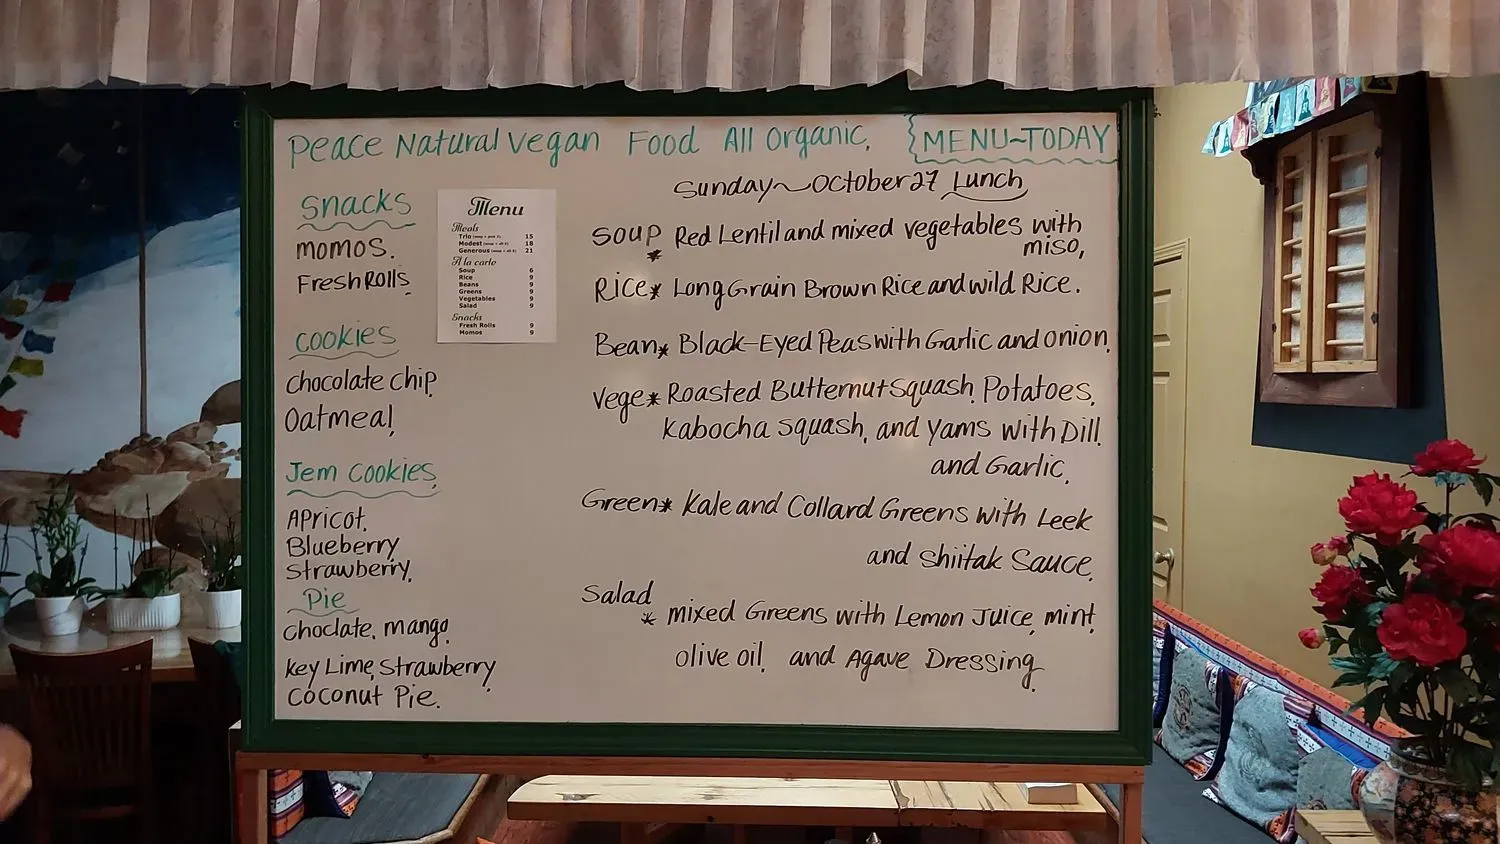 Peace Natural Vegan Food All Organic. {MENU~TODAY
Sunday~October 27 Lunch
Snacks
momos.
Fresh Rolls.
Cookies
Chocolate Chip.
Oatmeal.
Jem Cookies.
Apricot.
Blueberry
Strawberry.
Pie
Choclate, mango.
Key Lime, Strawberry,
Coconut Pie.
Menu
Meals
Trio (soup + pick 2) 15
Modest (soup + all 5) 18
Generous (soup + all 5) 21
A la carte
Soup 6
Rice 9
Beans 9
Greens 9
Vegetables 9
Salad 9
Snacks
Fresh Rolls 9
Momos 9
Soup * Red Lentil and mixed vegetables with
miso,
Rice * Long Grain Brown Rice and wild Rice.
Bean * Black-Eyed Peas with Garlic and onion.
Vege * Roasted Butternut Squash, Potatoes,
Kabocha squash, and Yams with Dill
and Garlic.
Green * Kale and Collard Greens with Leek
and Shiitak Sauce.
Salad
* mixed Greens with Lemon Juice, mint,
olive oil, and Agave Dressing.